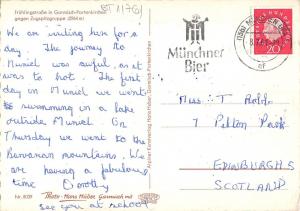 Frühlingsstraße in Garmisch-Partenkirchen
gegen Zugspitzgruppe (2964 m)
BT 11761
We are visiting here for a
day. The journey to
Munich was awful, as it
was to hot. The first
day in Munich we went
swimming in a lake
outside Munich. On
Thursday we went to the
Bavarian mountains. We
are having a fabulous
time Dorothy
see you at school
Nr. 809 Photo-Hans Huber Garmisch mit
Münchner
Bier
DEUTSCHE BUNDESPOST
20
Miss T
7 Pelton Park
EDINBURGH 5
SCOTLAND